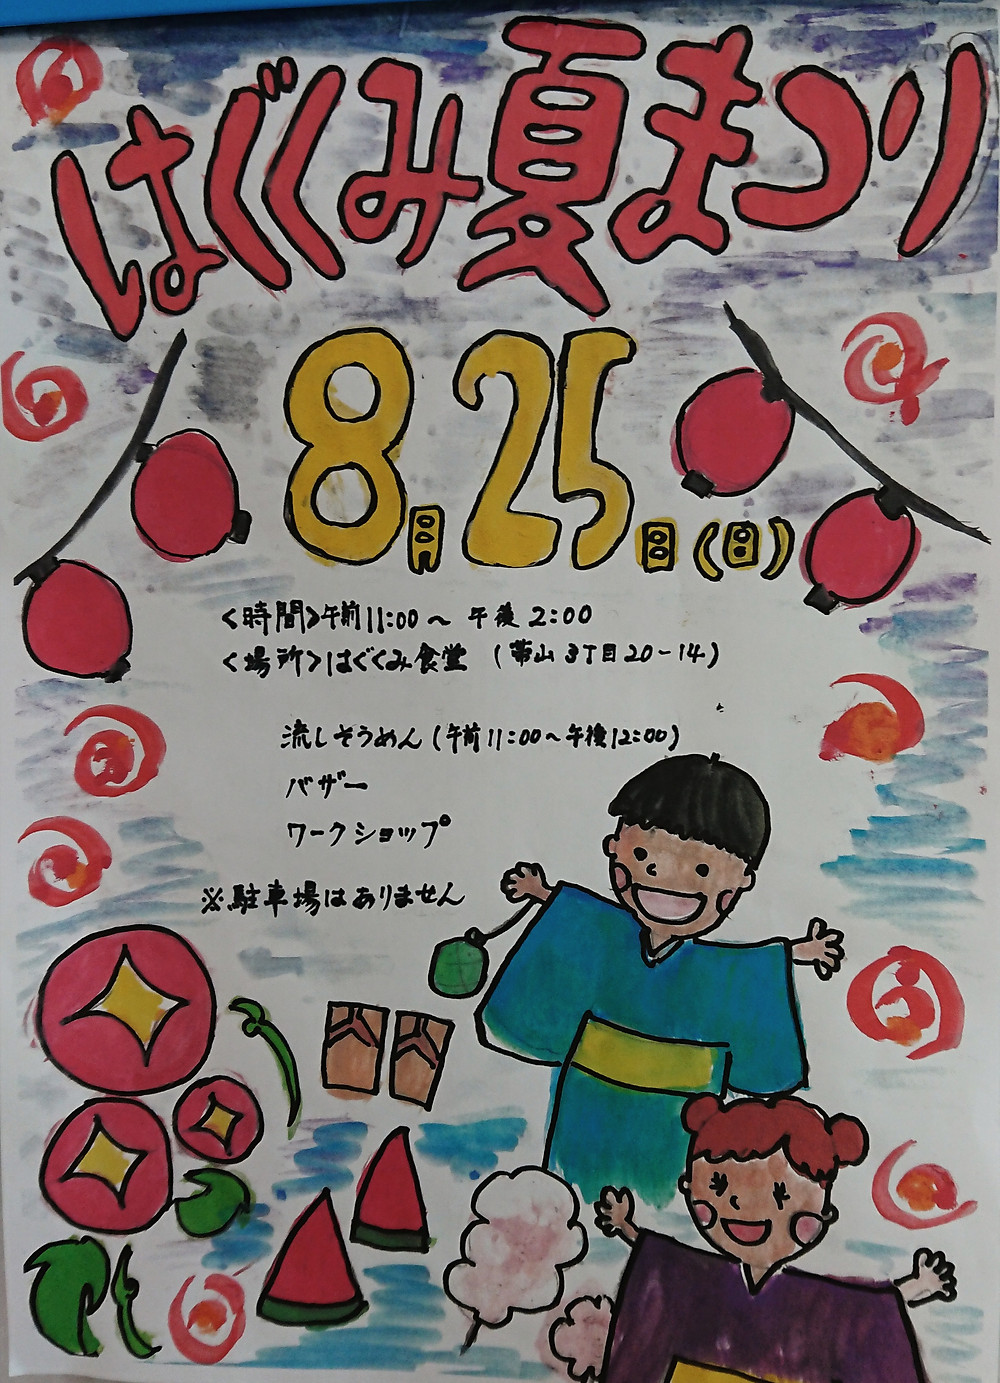 はぐくみ夏まつり
8月25日(日)
<時間>午前11:00〜午後2:00
<場所>はぐくみ食堂 (帯山3丁目20-14)
流しそうめん(午前11:00〜午後12:00)
バザー
ワークショップ
※駐車場はありません